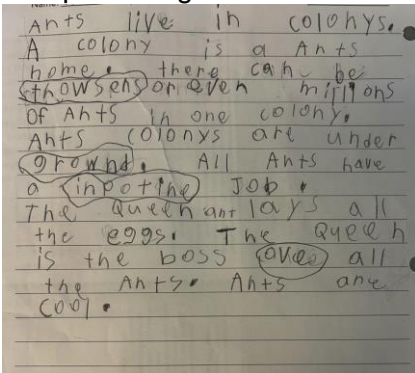 Ants live in colonys.
A colony is a Ants
home. there can be
thowsens or even millions
of Ants in one colony.
Ants colonys are under
grownd. All Ants have
a inpotine Job.
The Queen ant lays all
the eggs. The Queen
is the boss ovee all
the Ants. Ants are
cool.